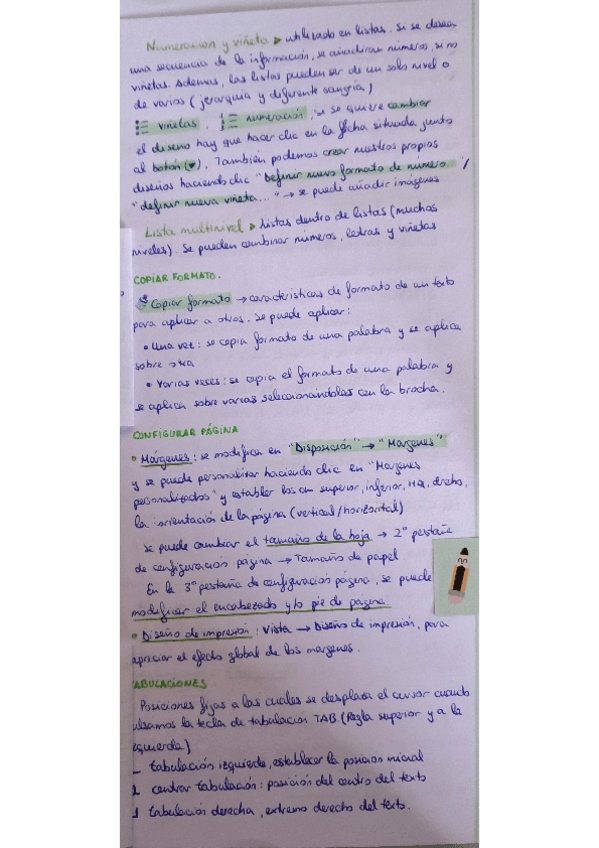 Numeracion y viñeta → utilizado en listas. Si se desea
una secuencia de la información, se añadiran números, si no
viñetas. Ademas, las listas pueden ser de un solo nivel o
de varios (jerarquía y diferente sangría)
viñetas, numeración, si se quiere cambiar
el diseño hay que hacer clic en la flecha situada junto
al botón (▾). También podemos crear nuestros propios
diseños haciendo clic "Definir nuevo formato de número..." /
"definir nueva viñeta..." → se puede añadir imágenes
Lista multinivel → listas dentro de listas (muchos
niveles). Se pueden combinar números, letras y viñetas
COPIAR FORMATO.
Copiar formato → características de formato de un texto
para aplicar a otros. Se puede aplicar:
• Una vez: se copia formato de una palabra y se aplica
sobre otra
• Varias veces: se copia el formato de una palabra y
se aplica sobre varias seleccionándolas con la brocha.
CONFIGURAR PÁGINA
• Márgenes: se modifica en "Disposición" → "Margenes"
y se puede personalizar haciendo clic en "Margenes
personalizados" y establer los cm superior, inferior, izq, drcho,
la orientación de la página (vertical/horizontal)
Se puede cambiar el tamaño de la hoja → 2ª pestaña
de configuración página → Tamaño de papel
En la 3ª pestaña de configuración página, se puede
modificar el encabezado y/o pie de pagina.
• Diseño de impresión: Vista → Diseño de impresión, para
apreciar el efecto global de los margenes.
TABULACIONES
Posiciones fijas a las cuales se desplaza el cursor cuando
pulsamos la tecla de tabulación TAB. (Regla superior y a la
izquierda)
tabulación izquierda, establecer la posicion inicial
centrar tabulación: posición del centro del texto
tabulación derecha, extremo derecho del texto.